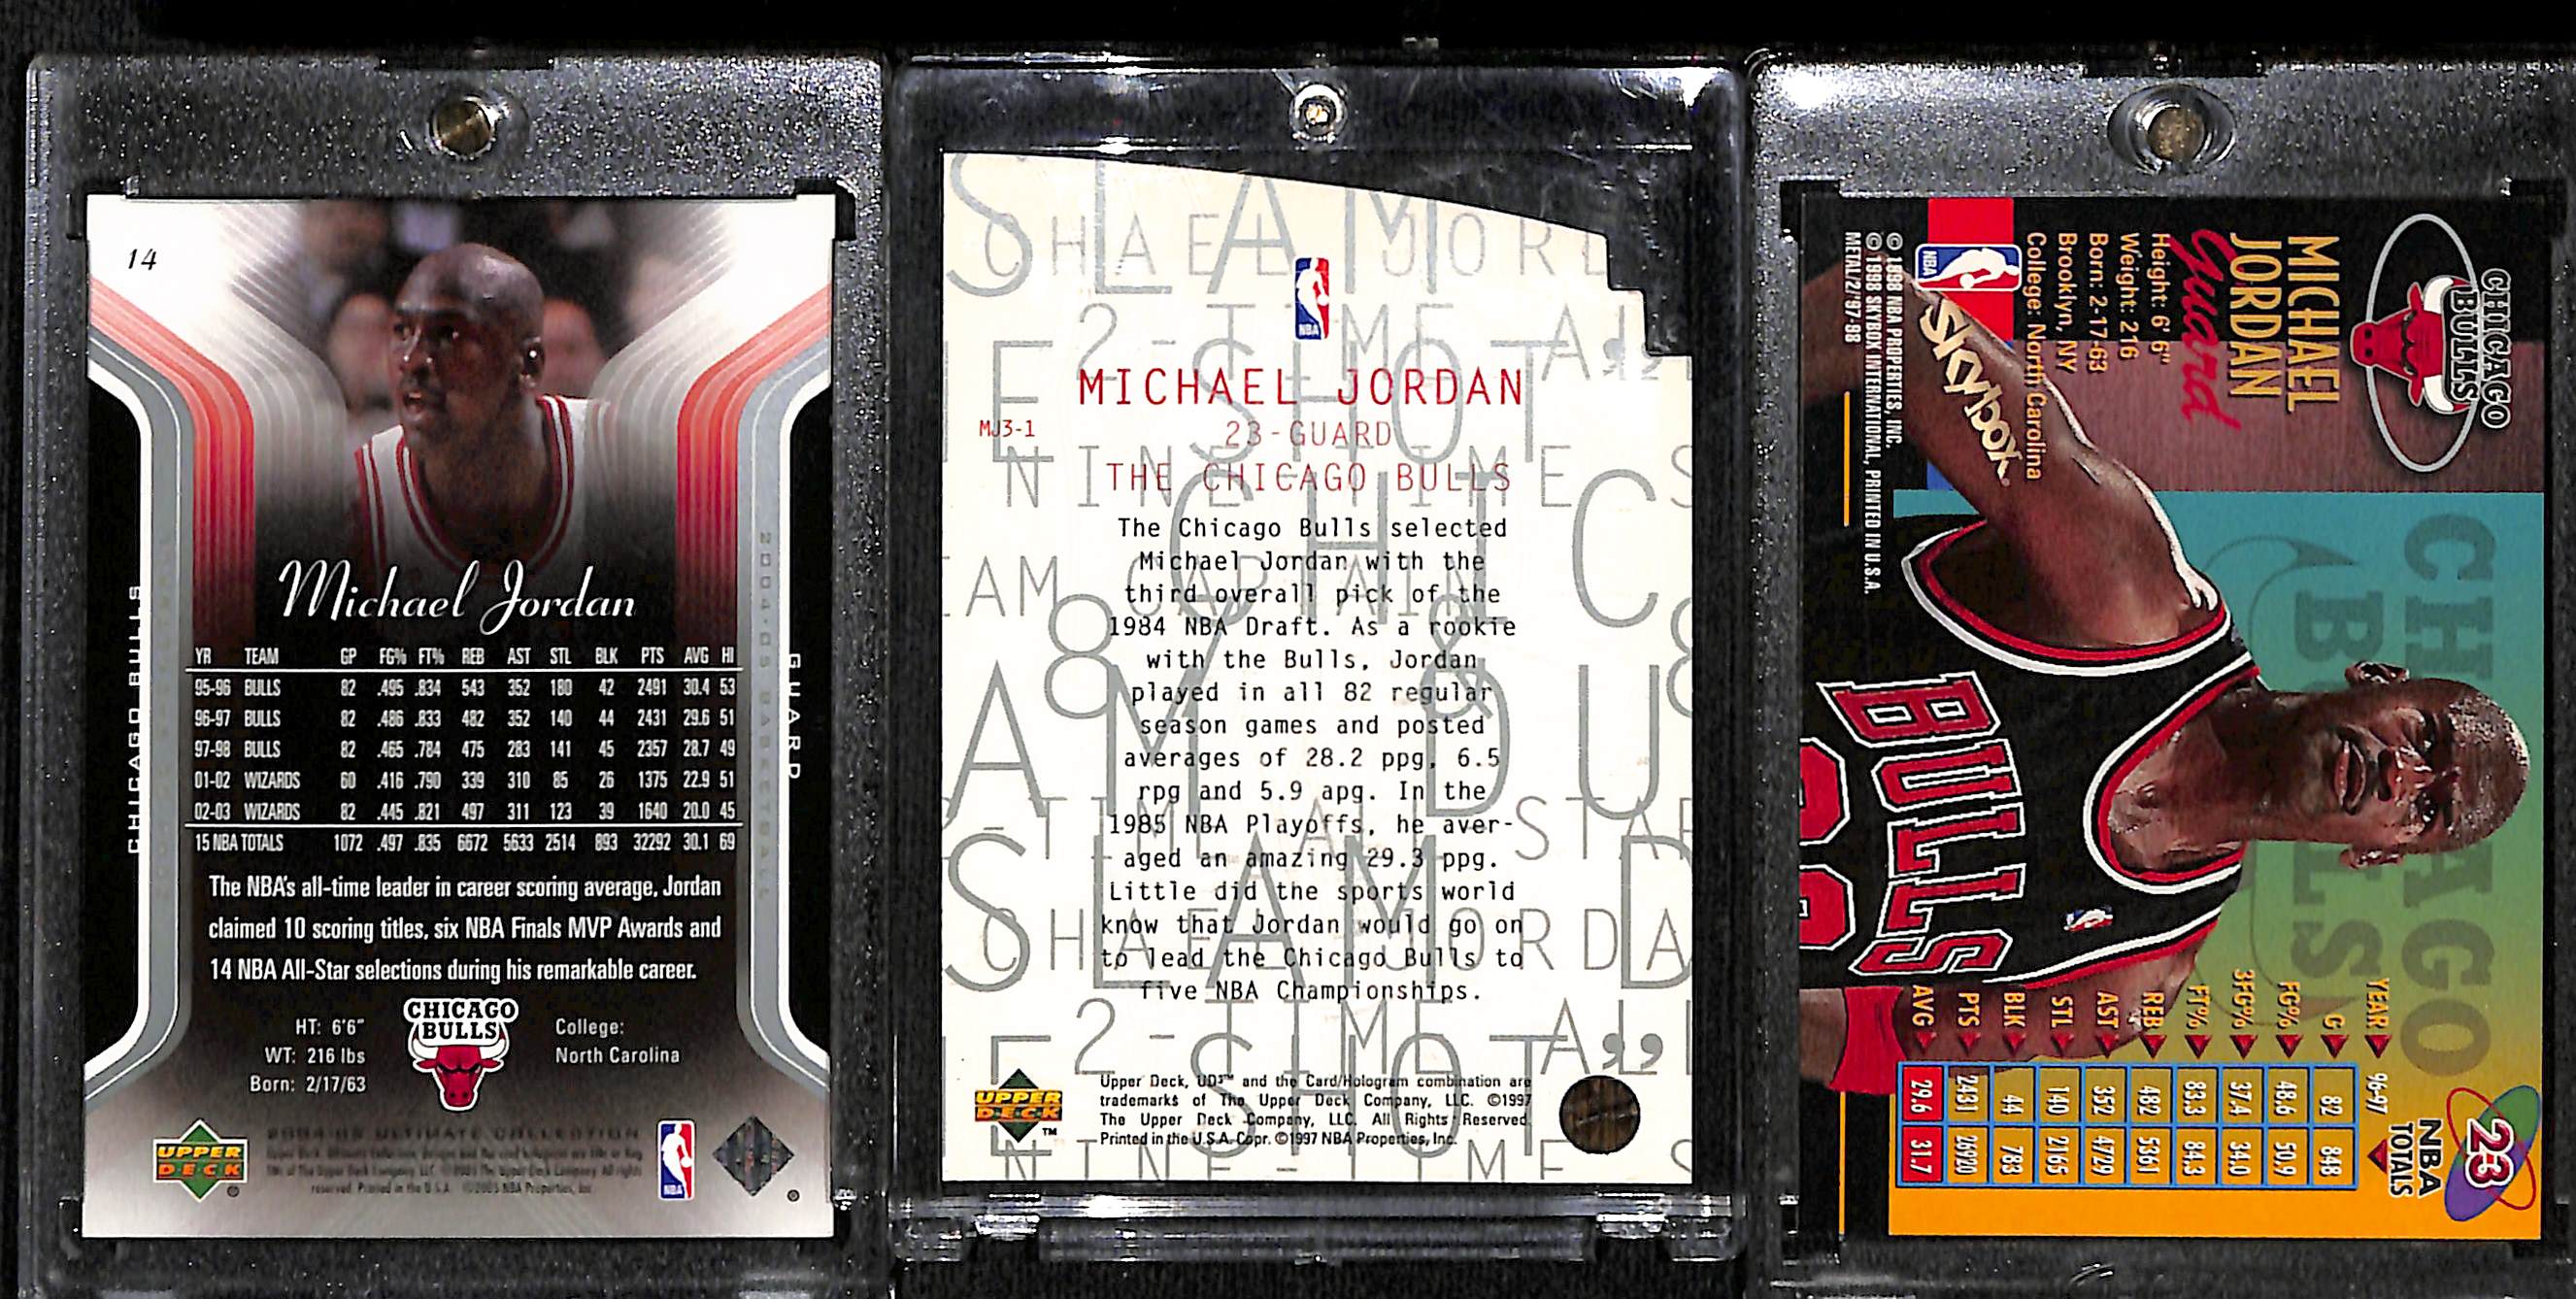 14
Michael Jordan
CHICAGO BULLS
GUARD
2004-05 BASKETBALL
YR TEAM GP FG% FT% REB AST STL BLK PTS AVG HI
95-96 BULLS 82 .495 .834 543 352 180 42 2491 30.4 53
96-97 BULLS 82 .486 .833 482 352 140 44 2431 29.6 51
97-98 BULLS 82 .465 .784 475 283 141 45 2357 28.7 49
01-02 WIZARDS 60 .416 .790 339 310 85 26 1375 22.9 51
02-03 WIZARDS 82 .445 .821 497 311 123 39 1640 20.0 45
15 NBA TOTALS 1072 .497 .835 6672 5633 2514 893 32292 30.1 69
The NBA's all-time leader in career scoring average, Jordan
claimed 10 scoring titles, six NBA Finals MVP Awards and
14 NBA All-Star selections during his remarkable career.
HT: 6'6"
WT: 216 lbs
Born: 2/17/63
CHICAGO
BULLS
College:
North Carolina
UPPER
DECK
NBA
SLAM
CHAEL JORD
2-TIME AL
SHOT
NINE-TIME S
NBA
MICHAEL JORDAN
MJ3-1
23-GUARD
THE CHICAGO BULLS
The Chicago Bulls selected
Michael Jordan with the
third overall pick of the
1984 NBA Draft. As a rookie
with the Bulls, Jordan
played in all 82 regular
season games and posted
averages of 28.2 ppg, 6.5
rpg and 5.9 apg. In the
1985 NBA Playoffs, he aver-
aged an amazing 29.3 ppg.
Little did the sports world
know that Jordan would go on
to lead the Chicago Bulls to
five NBA Championships.
UPPER
DECK
TM
Upper Deck, UD3™ and the Card/Hologram combination are
trademarks of The Upper Deck Company, LLC. ©1997
The Upper Deck Company, LLC. All Rights Reserved.
Printed in the U.S.A. Copr. ©1997 NBA Properties, Inc.
CHICAGO
BULLS
MICHAEL
JORDAN
guard
Height: 6' 6"
Weight: 216
Born: 2-17-63
Brooklyn, NY
College: North Carolina
NBA
SKYBOX
© 1998 NBA PROPERTIES, INC.
© 1998 SKYBOX INTERNATIONAL, PRINTED IN U.S.A.
METAL/2/97-98
CHICAGO
BULLS
BULLS
23
NBA
TOTALS
YEAR 96-97
G 82 848
FG% 48.6 50.9
3FG% 37.4 34.0
FT% 83.3 84.3
REB 482 5361
AST 352 4729
STL 140 2165
BLK 44 783
PTS 2431 26920
AVG 29.6 31.7